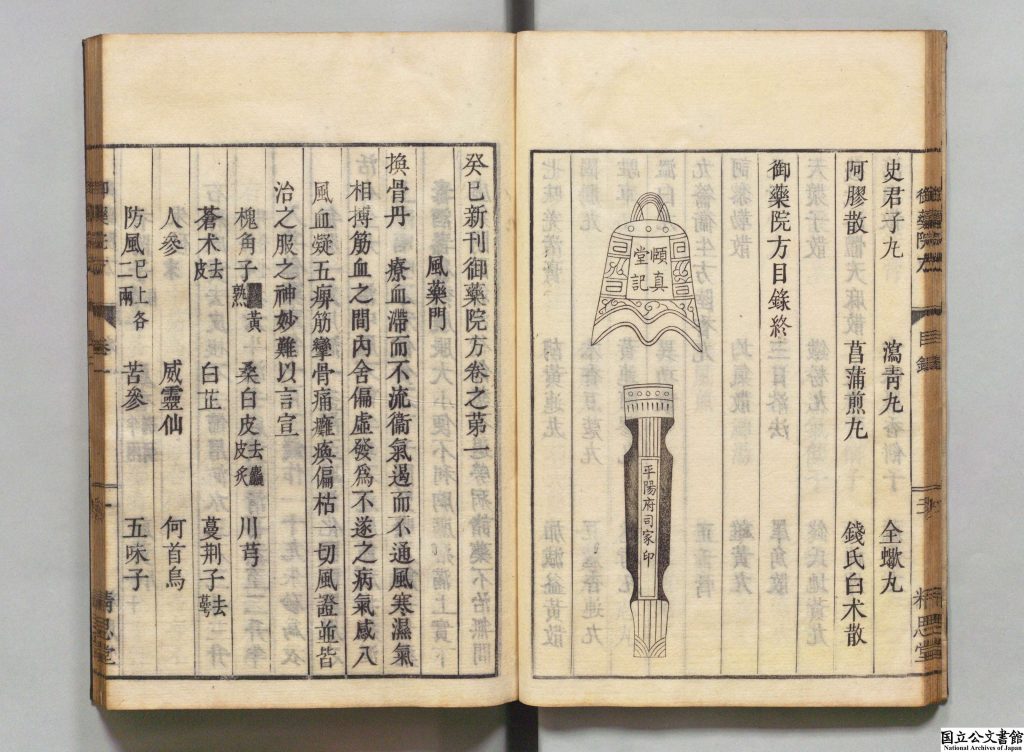 史君子丸 瀉青丸 全蠍丸
阿膠散 菖蒲煎丸 錢氏白术散
御藥院方目錄終
頤真
堂記
平陽府司家印
御藥院方 目錄
精思堂
癸巳新刊御藥院方卷之苐一
風藥門
換骨丹 療血滯而不流衞氣過而不通風寒濕氣
相搏筋血之間內舍偏虛發爲不遂之病氣感八
風血凝五痹筋攣骨痛癱瘓偏枯一切風證並皆
治之服之神妙難以言宣
槐角子 黃熟 桑白皮去麤皮炙 川芎
蒼术去皮 白芷 蔓荆子去萼
人參 威靈仙 何首烏
防風已上各二兩 苦參 五味子
精思堂
国立公文書館
National Archives of Japan